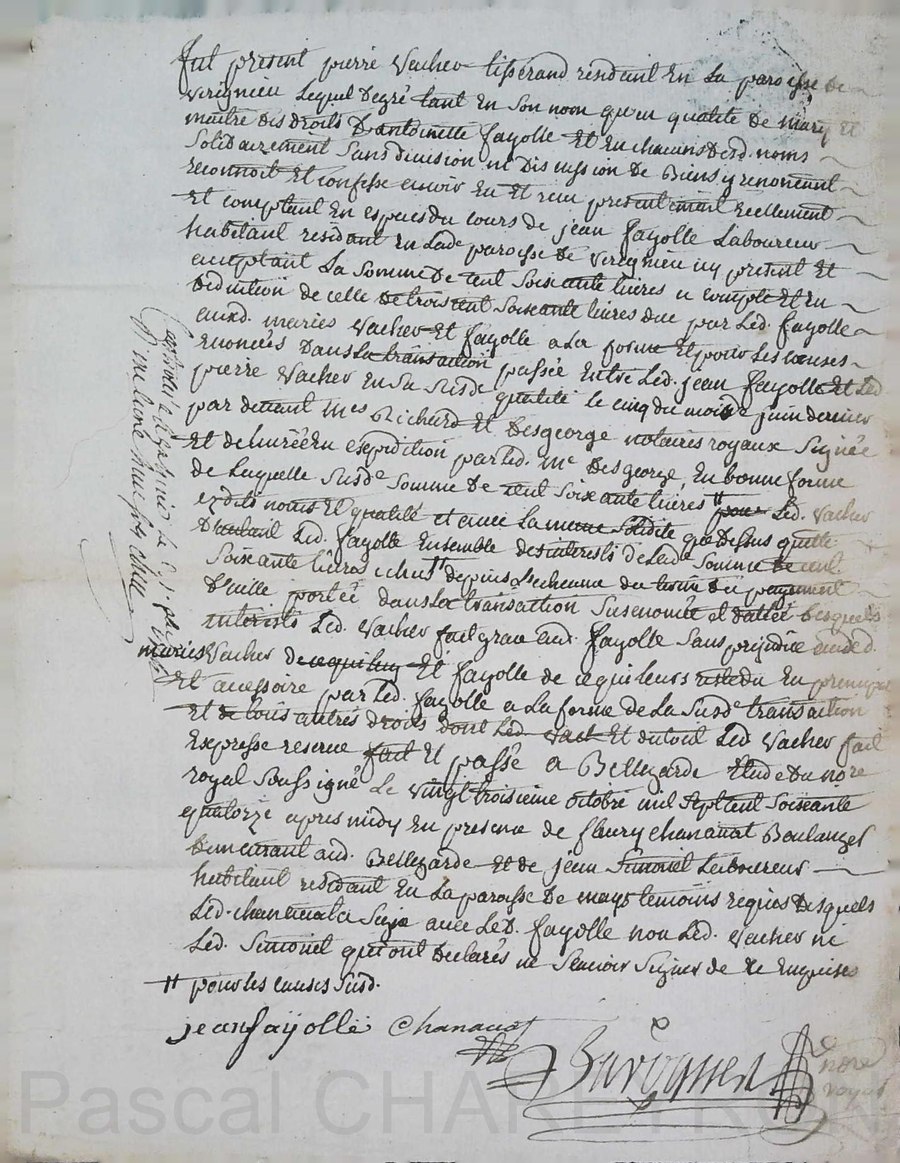 fut present pierre Vacher tisserand residant En La paroisse de
Virignieu Lequel degré tant en Son nom qu'en qualité de mary Et
maitre des droits D'antoinette fayolle Et En chacuns desd. noms
Solidairement Sans division ni discussion de Biens y renoncant
reconnoit Et confesse avoir Eu Et recu presentement reellement
Et comptant En especes du cours de jean fayolle Laboureur
habitant residant En Lade paroisse de Virignieu icy present Et
acceptant La Somme De cent Soixante livres a compte Et En
Deduction de celle De trois cent Soixante livres due par Led. fayolle
auxd. mariés Vacher Et fayolle a La forme Et pour Les causes
Enoncées Dans La transaction passée Entre Led. jean fayolle Et Led
pierre Vacher En Sa Susde qualité Le cinq du mois de juin dernier
par devant mes Richard Et Desgeorge notaires royaux Signée
Et delivrée En Expedition par Led. me Desgeorge, En bonne forme
de Laquelle Susde Somme De cent Soixante livres # pour Led. Vacher
Esdits noms Et qualité et avec La meme Solidité que Dessus quitte
D'autant Led. fayolle Ensemble des interests de Lade Somme de cent
Soixante livres Echus # depuis L'echeance du terme du payement
D'icelle portée dans La transaction Susenoncée et dattée Desquels
interists Led. Vacher fait grace aud. fayolle Sans prejudice auxd.
mariés Vacher de ce qui luy Et fayolle de ce qui Leurs reste du En principal
Et accessoire par Led. fayolle a La forme de La Susde transaction
Et de tous autres droits dont Led. Vach Et du tout Led Vacher fait
Expresse reserve fait Et passé a Bellegarde Etude Du nore
royal Soussigné Le Vingt troisieme octobre mil Sept cent Soixante
quatorze apres midy En presence de fleury chanavat Boulanger
Demeurant aud. Bellegarde Et de jean Simonet Laboureur
habitant residant En La paroisse De mays temoins requis Desquels
Led. chanavat a Signé avec Led. fayolle non Led. Vacher ni
Led. Simonet qui ont Declarés ne Scavoir Signer de ce Enquis
# pour les causes Susd.
jean fayolle Chanavat
nore
royal
Pascal CHAREYRON